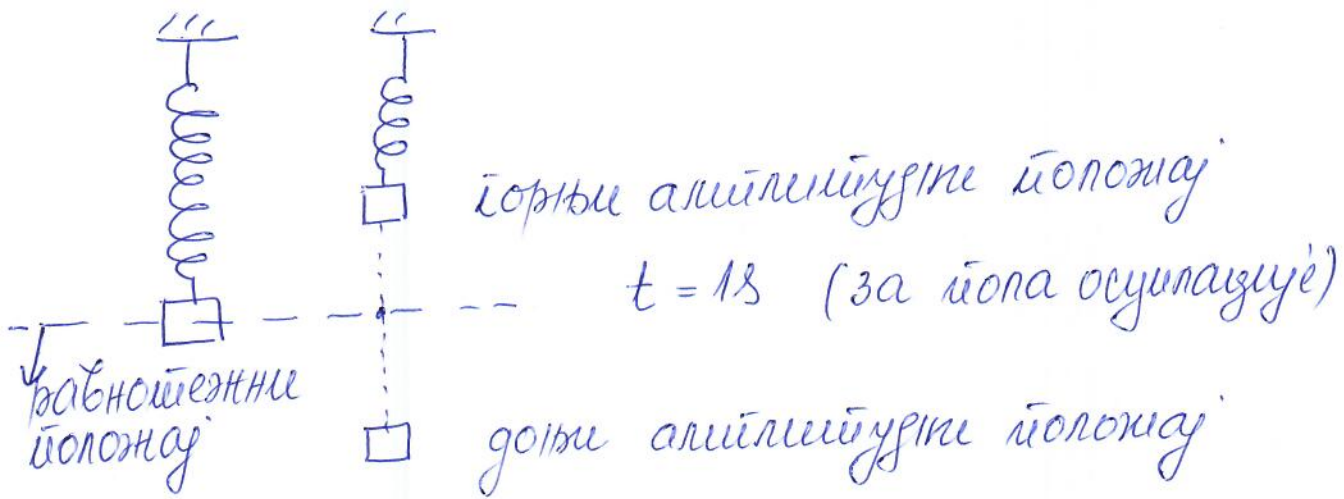 горњи амплитудни положај
t = 1s (за пола осцилације)
равнотежни
положај
доњи амплитудни положај